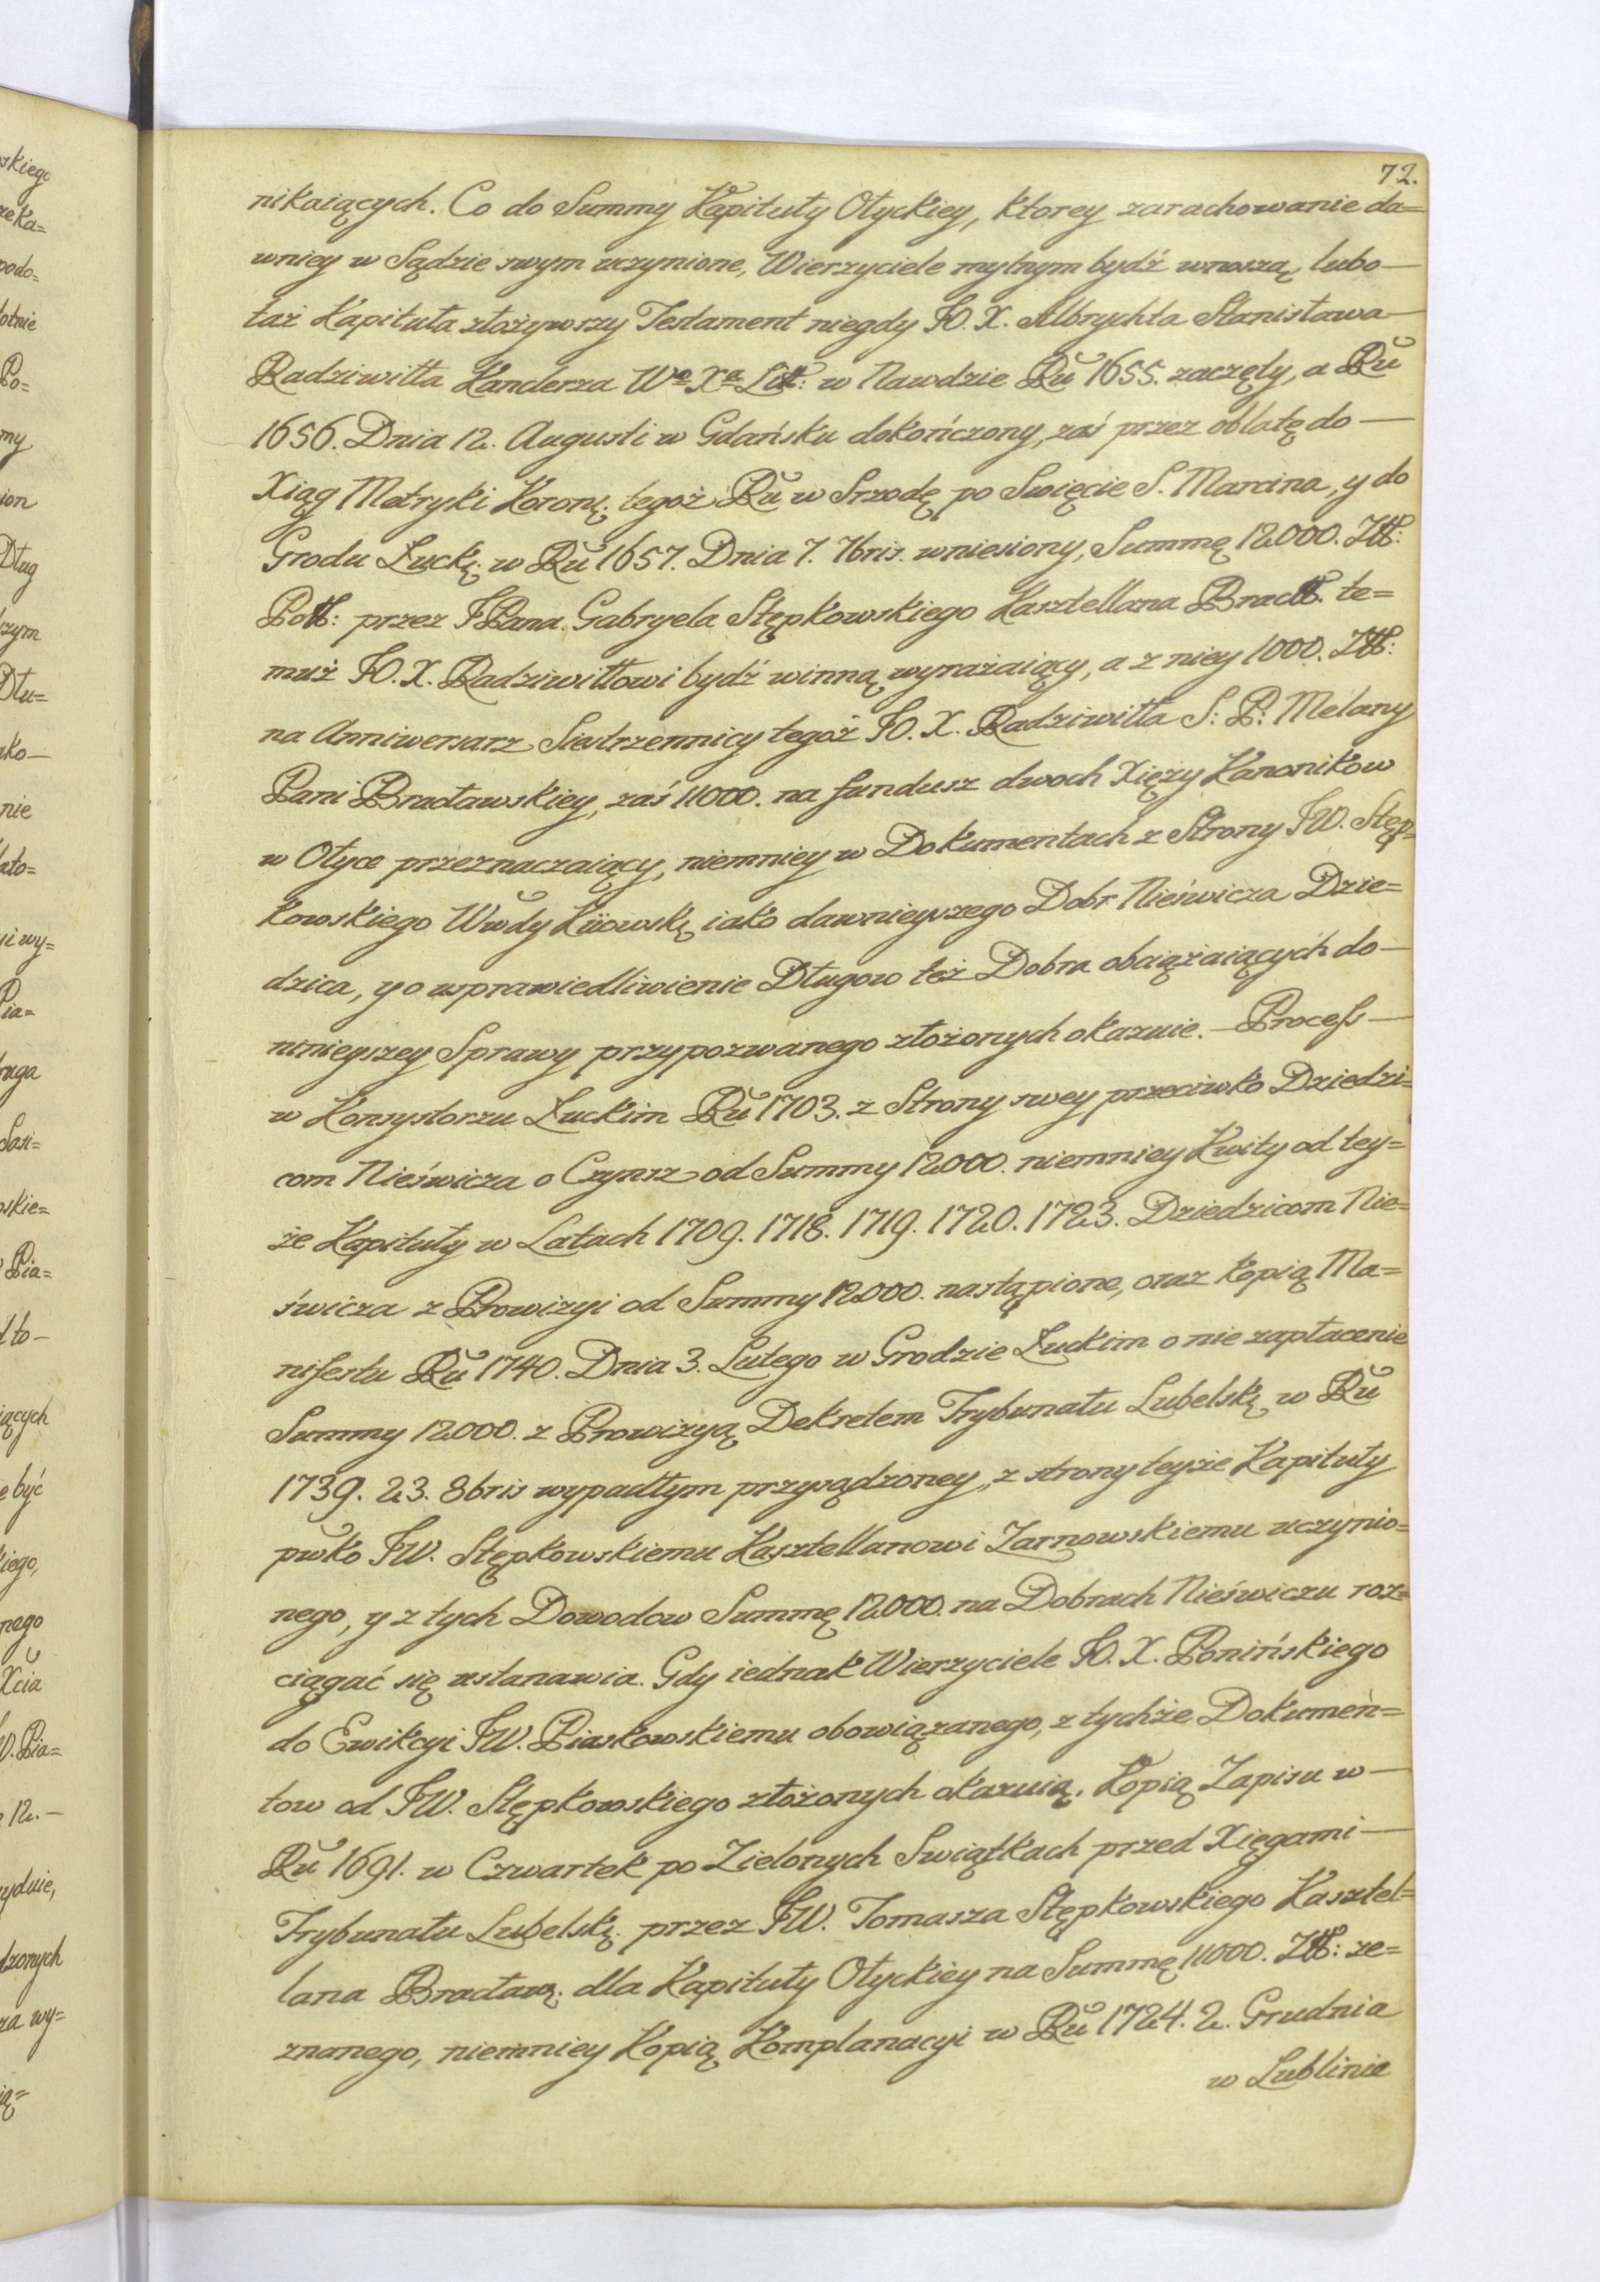 72.
nikaiących. Co do Summy Kapituły Ołyckiey, ktorey zarachowanie da=
wniey w Sądzie swym uczynione, Wierzyciele mylnym bydź wnoszą, lubo—
taż Kapituła złożywszy Testament niegdy JO. X. Albrychta Stanisława—
Radziwiłła Kanclerza Wo Xa Litt: w Nawdzie Ru 1655. zaczęty, a Ru
1656. Dnia 12. Augusti w Gdańsku dokończony, zaś przez oblatę do—
Xiąg Metryki Koronę. tegoż Ru w Srzodę po Swięcie S. Marcina, y do
Grodu Łuckę. w Ru 1657. Dnia 7. 7bris. wniesiony, Summę 12000. Złł:
Poll: przez JPana Gabryela Stępkowskiego Kasztellana Bracll. te=
muż JO. X. Radziwiłłowi bydź winną wyrażaiący, a z niey 1000. Złł:
na Anniwersarz Siestrzennicy tegoż JO. X. Radziwiłła S: P: Melany
Pani Bracławskiey, zaś 11000. na fundusz dwoch Xięży Kanonikow
w Ołyce przeznaczaiący, niemniey w Dokumentach z Strony JW. Stęp=
kowskiego Wwdy Kiiowskę iako dawnieyszego Dobr Nieświcza Dzie=
dzica, y o wprawiedliwienie Długow też Dobra obciążaiących do—
ninieyszey Sprawy przypozwanego złożonych okazuie. — Process—
w Konsystorzu Łuckim Ru 1703. z Strony swey przeciwko Dziedzi=
com Nieświcza o Czynsz od Summy 12000. niemniey Kwity od tey=
że Kapituły w Latach 1709. 1718. 1719. 1720. 1723. Dziedzicom Nie=
świcza z Prowizyi od Summy 12000. nastąpione, oraz kopią Ma=
nifestu Ru 1740. Dnia 3. Lutego w Grodzie Łuckim o nie zapłacenie
Summy 12000. z Prowizyą Dekretem Trybunału Lubelskę w Ru
1739. 23. 8bris wypadłym przysądzoney, z strony teyże Kapituły
pwko JW. Stępkowskiemu Kasztellanowi Zarnowskiemu uczynio=
nego, y z tych Dowodow Summę 12000. na Dobrach Nieświczu roz=
ciągać się ustanawia. Gdy iednak Wierzyciele JO. X. Ponińskiego
do Ewikcyi JW. Piaskowskiemu obowiązanego, z tychże Dokumen=
tow od JW. Stępkowskiego złożonych okazuią, Kopią Zapisu w—
Ru 1691. w Czwartek po Zielonych Swiątkach przed Xięgami—
Trybunału Lubelskę. przez JW. Tomasza Stępkowskiego Kasztel=
lana Bracławę. dla Kapituły Ołyckiey na Summę 11000. Złł: ze=
znanego, niemniey Kopią Komplanacyi w Ru 1724. 2. Grudnia
w Lublinie